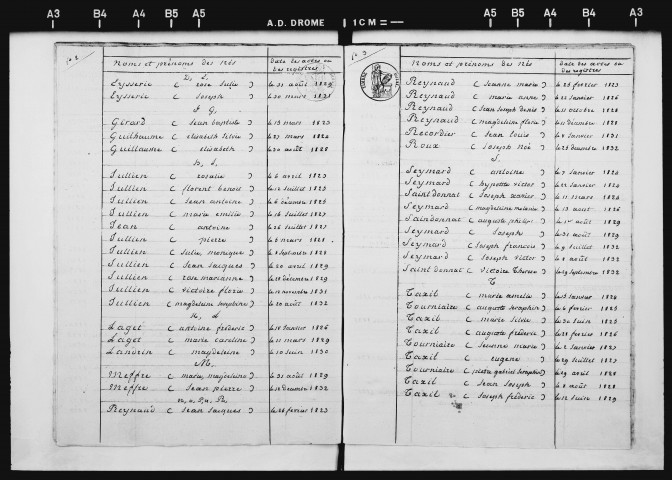 A3 B4 B5 A4 A5 A.D. DROME 1CM A5 A4 B5 B4 A3
fo 2
Noms et prénoms des Nés date des actes ou des registres
D, E.
Eysserie ( rose Julie ) le 31 août 1829
Eysserie ( Joseph ) le 30 mars 1831
F G,
Girard ( Jean baptiste ) le 13 mars 1823
Guilhaume ( elisabeth Silvie ) le 27 mars 1824
Guillaume ( elisabeth ) le 20 août 1828
h, J,
Jullien ( rosalie ) le 6 avril 1823
Jullien ( florent benoit ) le 12 Juillet 1823
Jullien ( Jean antoine ) le 6 décembre 1825
Jullien ( marie emilie ) le 16 Juillet 1827
Jean ( antoine ) le 26 Juillet 1827
Jullien ( pierre ) le 6 mars 1828
Jullien ( Julie, monique ) Septembre 1828
Jullien ( Jean Jacques ) le 20 avril 1829
Jullien ( rose marianne ) décembre 1829
Jullien ( victoire flavie ) novembre 1831
Jullien ( magdeleine seraphine ) le 20 août 1832
K, L
Laget ( antoine fréderic ) le 18 Janvier 1826
Laget ( marie caroline ) le 11 mars 1829
Landrin ( magdeleine ) le 10 Juin 1830
M.
Meffre ( marie magdeleine ) le 31 août 1829
Meffre ( Jean pierre ) décembre 1832
n, o, P, q, R,
Reynaud ( Jean Jacques ) le 26 fevrier 1823
fo 3
Noms et prénoms des Nés date des actes ou des registres
Reynaud ( Jeanne marie ) le 26 fevrier 1823
Reynaud ( marie anne ) le 22 Janvier 1826
Reynaud ( Jean Joseph denis ) le 11 octobre 1828
Reynaud ( magdeleine flavie ) le 11 décembre 1828
Recordier ( Jean Louis ) Janvier 1831
Roux ( Joseph Noé ) le 25 décembre 1832
S.
Seymard ( antoine ) le 7 Janvier 1824
Seymard ( hypolite victor ) le 22 Janvier 1824
Saint donnat ( Joseph xavier ) le 11 mars 1824
Seymard ( magdeleine melanie ) le 13 août 1826
Saindonnat ( auguste philip. ) le 1er août 1829
Seymard ( Joseph ) le 31 août 1829
Seymard ( Joseph francois ) le 9 Juillet 1832
Seymard ( Joseph victor ) août 1832
Saint donnat ( Victoire Therese ) Septembre 1832
T
Taxil ( marie amelie ) le 13 Janvier 1824
Tourniaire ( auguste seraphin ) le 4 fevrier 1825
Taxil ( marie Silvie ) le 30 Juin 1825
Taxil ( auguste fréderic ) fevrier 1826
Tourniaire ( Jeanne marie ) le 2 Janvier 1827
Taxil ( eugene ) le 29 Juillet 1827
Tourniaire ( pierre gabriel seraphin ) le 29 avril 1828
Taxil ( Jean Joseph ) août 1828
Taxil ( Joseph fréderic ) le 12 Juin 1829
A3 B4 B5 A5 A4 A5 A4 B5 B4 A3